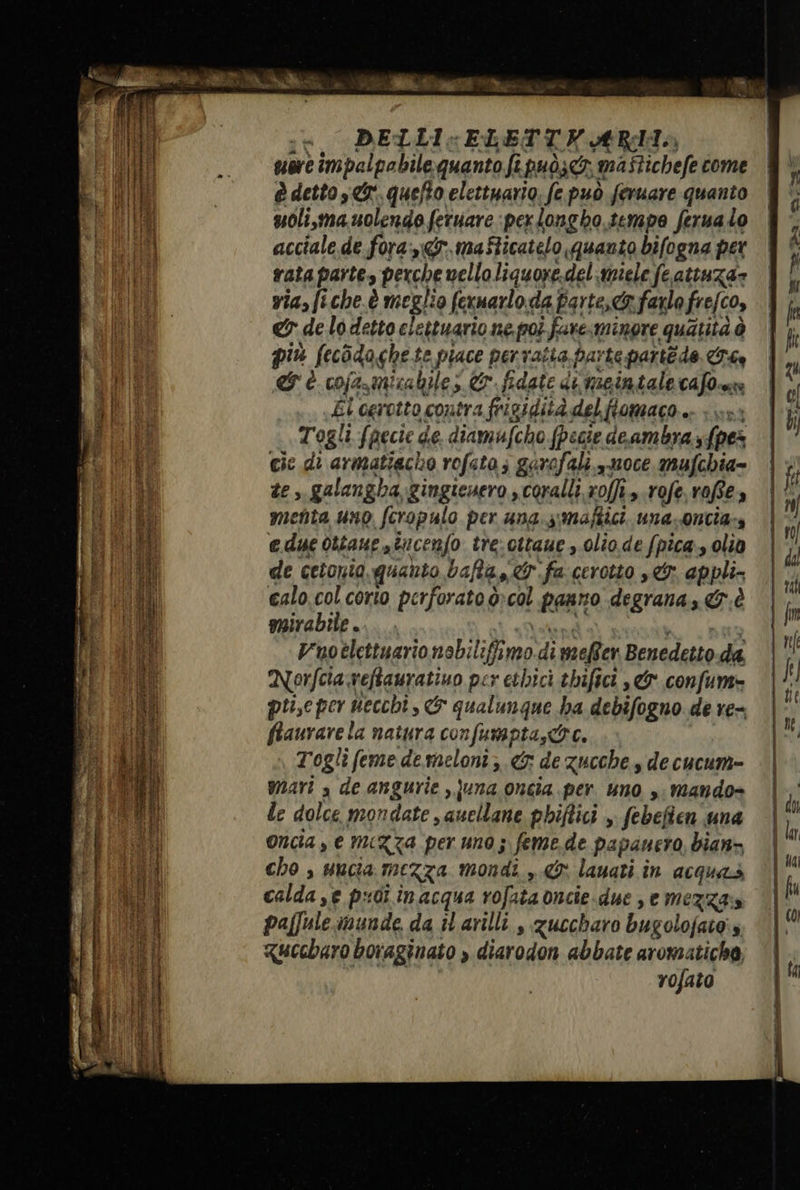 DELLI ELETTVARII.
uere impalpabile quanto ſi può, & maſtichefe come
è detto, & queſto elettuario ſe può ſeruare quanto
uoli, ma uolendo ſeruare per longho tempo ſerua lo
acciale de fora, & maſticatelo, quanto biſogna per
rata parte, perche uello liquore del miele ſe attuza-
ria, ſi che è meglio ſeruarlo da parte, & farlo freſco,
& de lo detto elettuario ne poi fare minore quãtità ò
più ſecõdo che te piace per ratta parte partẽdo &c.
& è coſa mirabile, & fidate di me in tale caſo.
El cerotto contra frigidità del ſtomaco.
Togli ſpecie de diamuſcho ſpecie de ambra, ſpe-
cie di armatiacho roſato; garofali, noce muſchia-
te, galangha, gingieuero, coralli roſſi, roſe roſſe,
menta uno ſcropulo per una, maſtici una oncia,
e due ottaue, incenſo tre ottaue, olio de ſpica, olio
de cetonia quanto baſta, & fa cerotto, & appli-
calo col corio perforato ò col panno de grana, & è
mirabile.
Vno elettuario nobiliſſimo di meſſer Benedetto da
Norſcia reſtauratiuo per ethici thiſici, & conſum-
pti, e per uecchi, & qualunque ha debiſogno de re-
ſtaurare la natura conſumpta, &c.
Togli ſeme de meloni, & de zucche, de cucum-
mari, de angurie, juna oncia per uno, mando-
le dolce mondate, auellane phiſtici, ſebeſten una
oncia, e mezza per uno; ſeme de papauero bian-
cho, uncia mezza mondi, & lauati in acqua
calda, e puoi in acqua roſata oncie due, e mezza,
paſſule munde da il arilli, zuccharo bugoloſato,
zuccharo boraginato, diarodon abbate aromaticho,
roſato